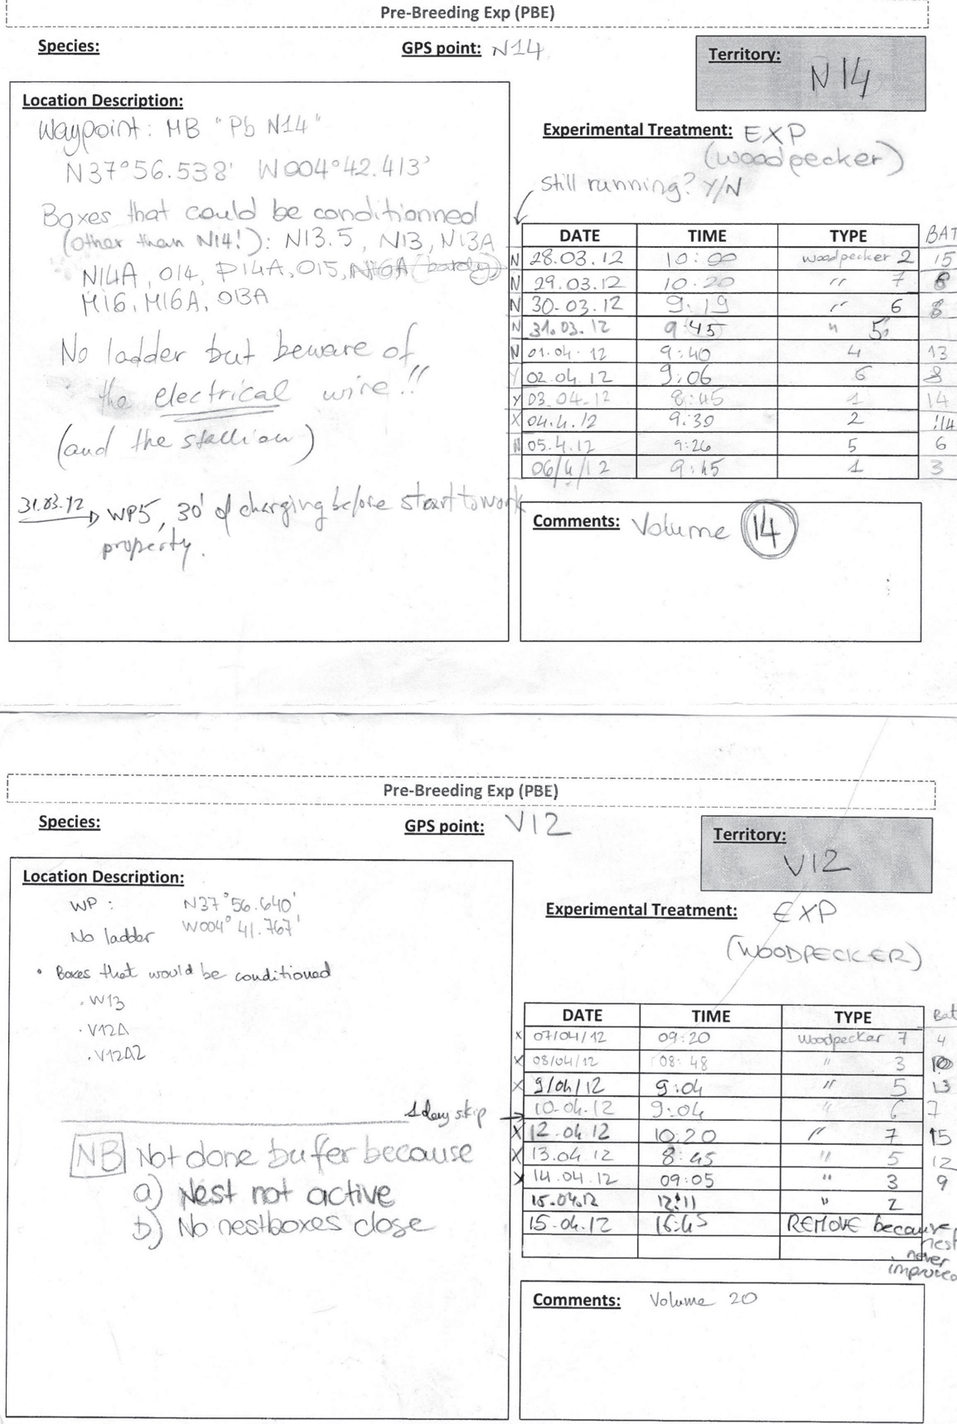 Pre-Breeding Exp (PBE)
Species:
GPS point: N14
Territory:
N14
Location Description:
Waypoint: MB "Pb N14"
N37°56.538' W004°42.413'
Boxes that could be conditionned
(other than N14!): N13.5, N13, N13A
N14A, O14, P14A, O15,
M16, M16A, O13A
No ladder but beware of
the electrical wire!!
(and the stallion)
31.03.12 WP5, 30' of charging before start to work
property.
Experimental Treatment: EXP
(woodpecker)
Still running? Y/N
DATE TIME TYPE BAT
N 28.03.12 10:00 woodpecker 2 15
N 29.03.12 10:20 " 7 8
N 30.03.12 9:19 " 6 8
N 31.03.12 9:45 " 5
N 01.04.12 9:40 4 13
Y 02.04.12 9:06 6 8
Y 03.04.12 8:45 1 14
X 04.4.12 9:30 2 !14
N 05.4.12 9:26 5 6
06/4/12 9:45 1 3
Comments: Volume 14
Pre-Breeding Exp (PBE)
Species:
GPS point: V12
Territory:
V12
Location Description:
WP: N37°56.640'
W004°41.767'
No ladder
• Boxes that would be conditioned
. W13
. V12A
. V12A2
1 day skip
NB Not done buffer because
a) Nest not active
b) No nestboxes close
Experimental Treatment: EXP
(WOODPECKER)
DATE TIME TYPE Bat
x 07/04/12 09:20 woodpecker 7 4
x 08/04/12 08:48 " 3
x 9/04/12 9:04 " 5 13
10.04.12 9:04 " 6 7
X 12.04.12 10:20 " 7 15
X 13.04.12 8:45 " 5 12
X 14.04.12 09:05 " 3 9
15.04.12 12:11 " 2
15.04.12 16:45 REMOVE because
nest
never
improved
Comments: Volume 20